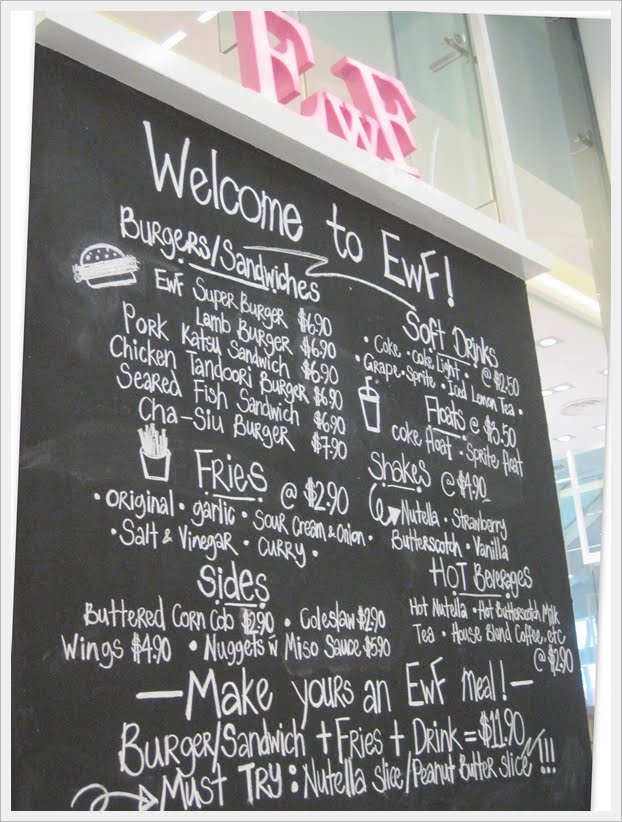 EwF
Welcome to EwF!
Burgers/Sandwiches
EwF Super Burger $6.90
Lamb Burger $6.90
Pork Katsu Sandwich $6.90
Chicken Tandoori Burger $6.90
Seared Fish Sandwich $6.90
Cha-Siu Burger $7.90
Fries @ $2.90
• original • garlic • sour cream & onion •
• Salt & Vinegar • curry •
Sides
Buttered Corn Cob $2.90 • Coleslaw $2.90
Wings $4.90 • Nuggets w Miso Sauce $5.90
Soft Drinks
• Coke • coke light • @ $2.50
• Grape • Sprite • Iced Lemon Tea •
Floats @ $3.50
coke float • Sprite float
Shakes @ $4.90
Nutella • Strawberry
Butterscotch • Vanilla
Hot Beverages
Hot Nutella • Hot Butterscotch Milk
Tea • House Blend Coffee, etc
@ $2.90
—Make yours an EwF meal!—
Burger/Sandwich + Fries + Drink = $11.90!!!
Must Try: Nutella slice/Peanut Butter slice